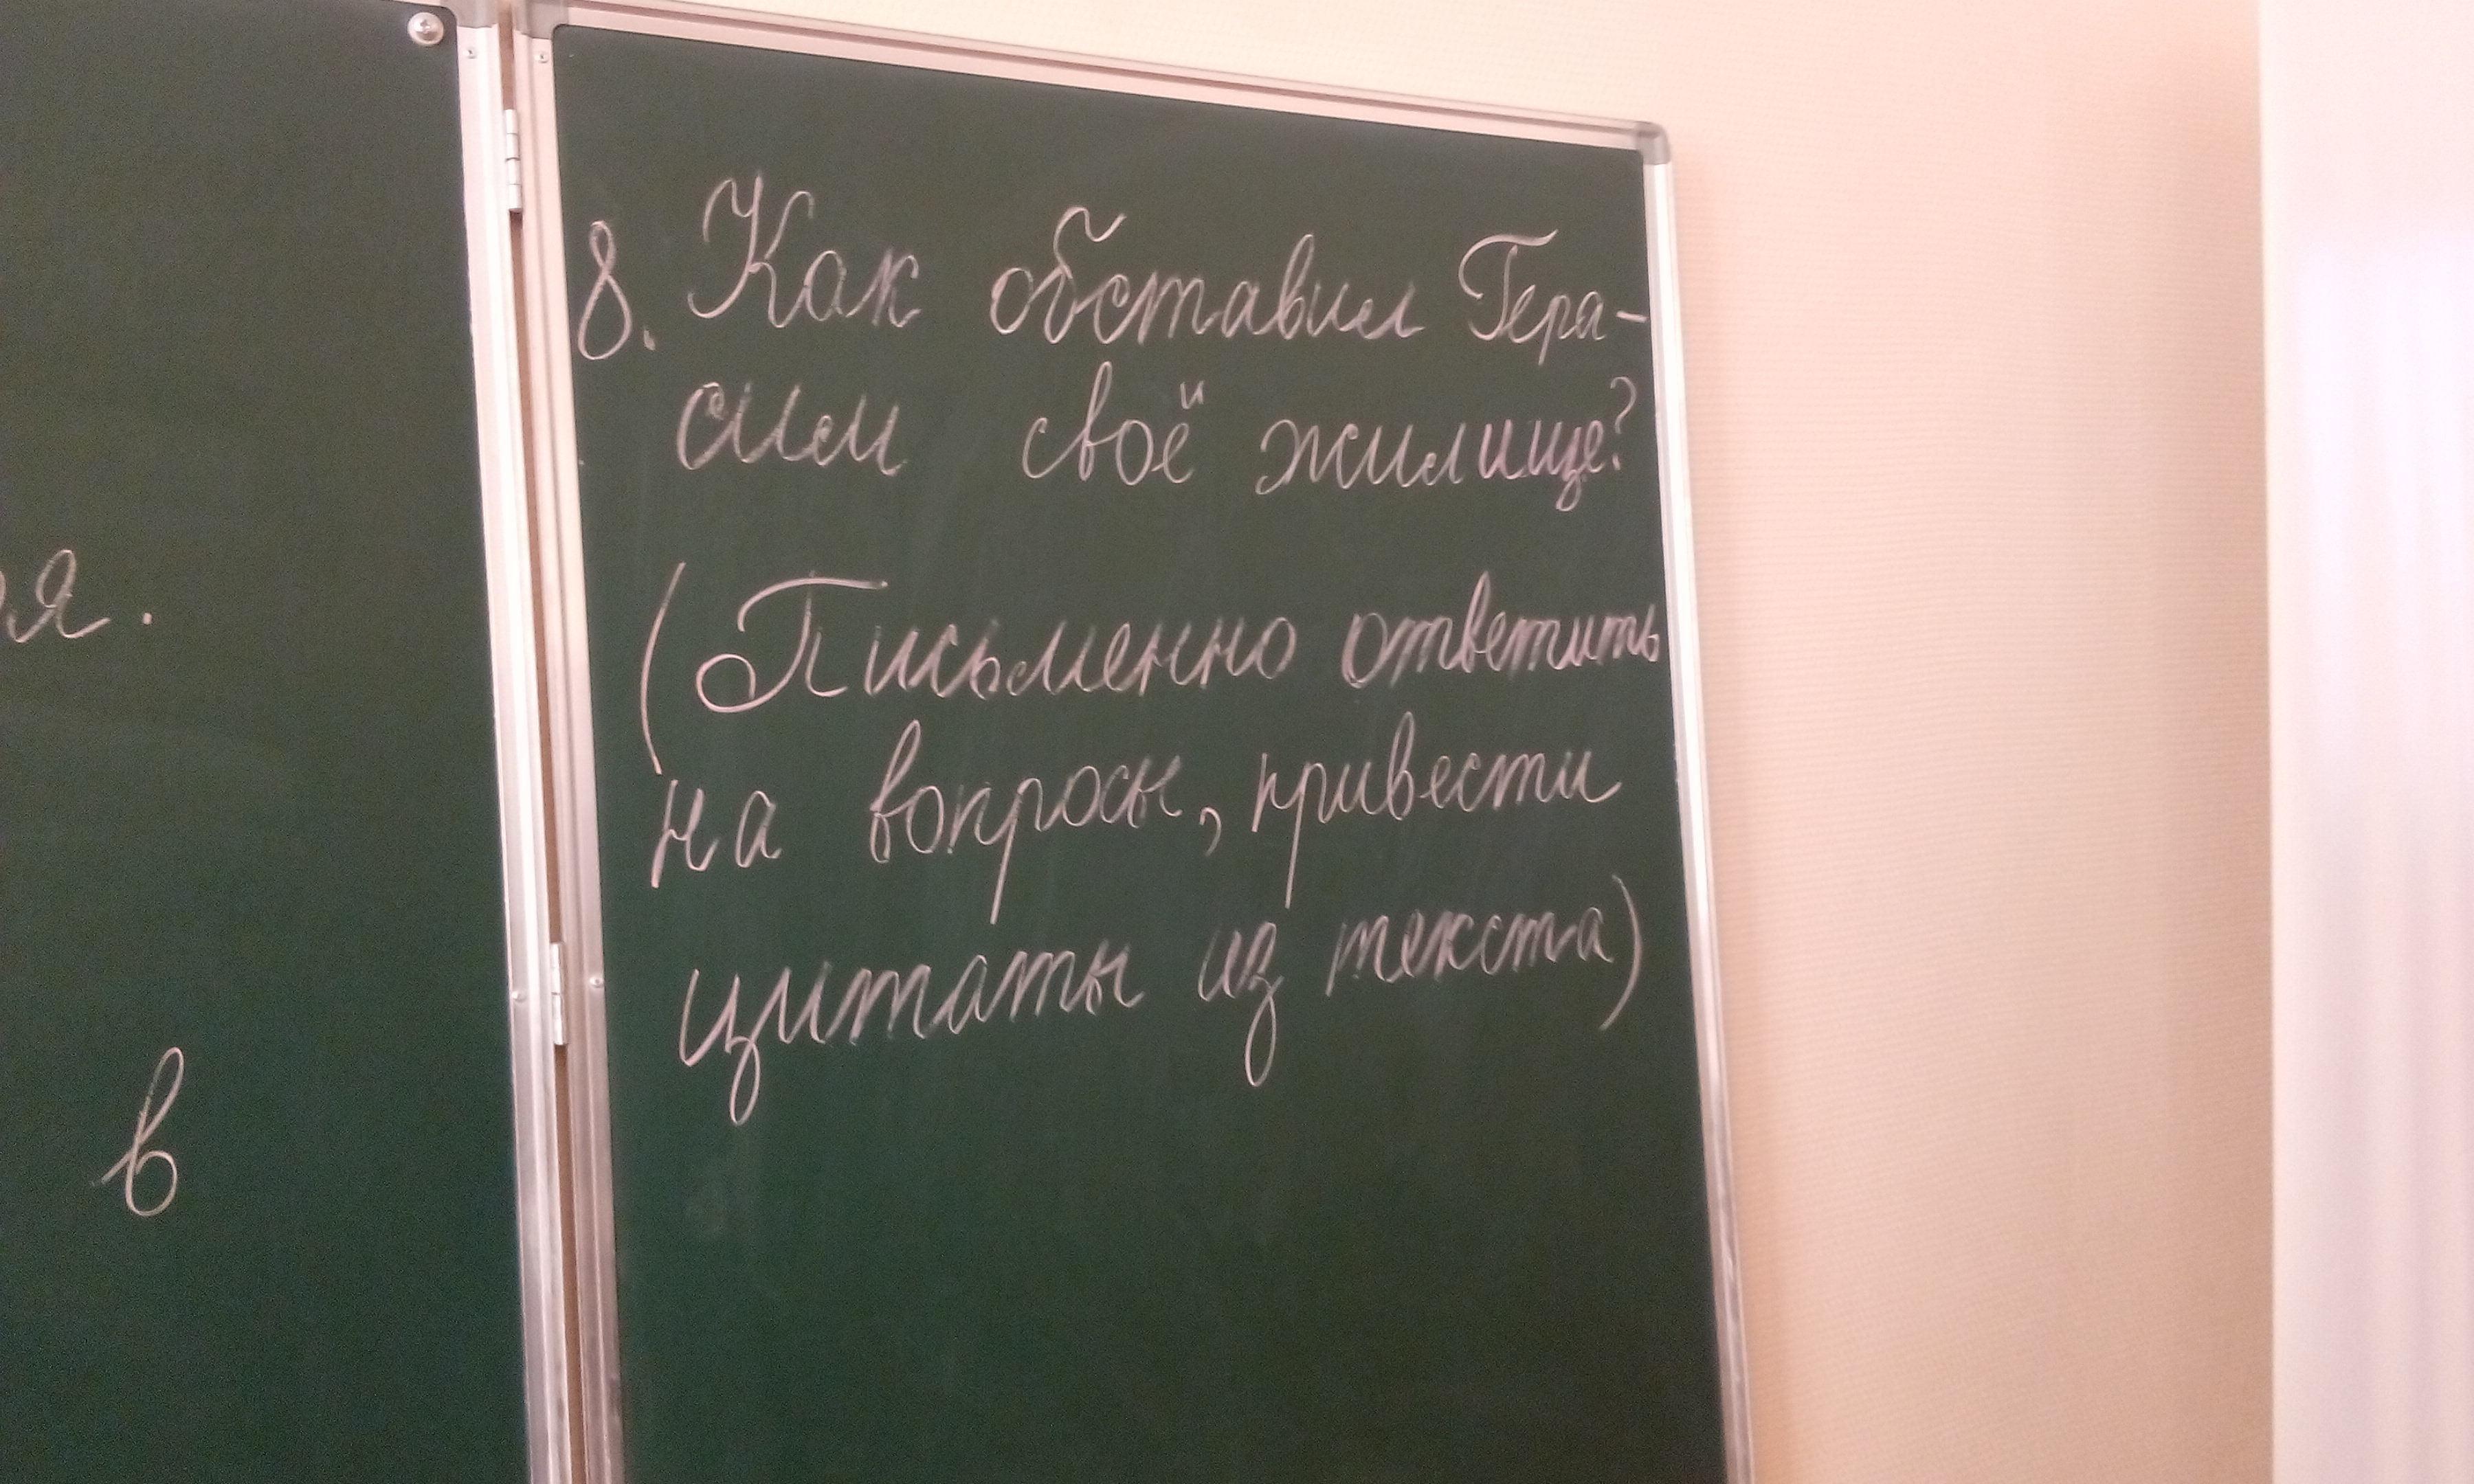 я.
в
8. Как обставил Гера-
сим своё жилище?
(Письменно ответить
на вопросы, привести
цитаты из текста)